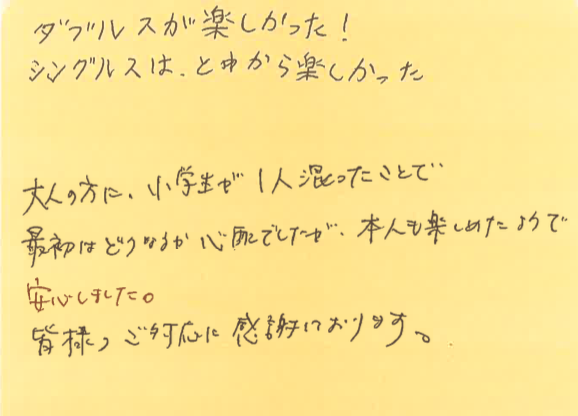 ダブルスが楽しかった！
シングルスは、と中から楽しかった
大人の方に、小学生が1人混ったことで
最初はどうなるか心配でしたが、本人も楽しめたようで
安心しました。
皆様のご対応に感謝しております。